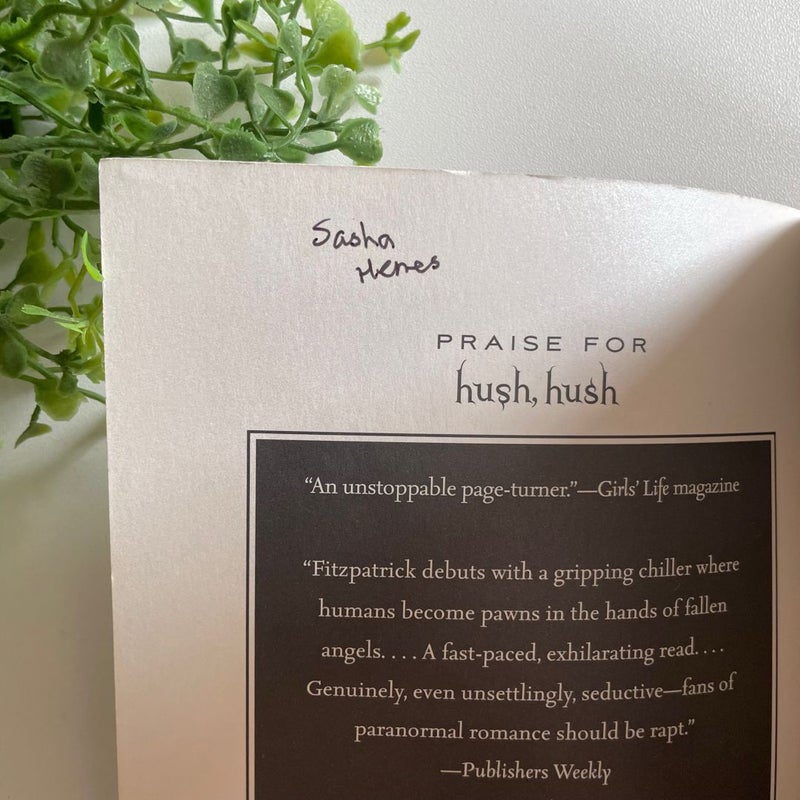 Sasha
Henes
PRAISE FOR
hush, hush
“An unstoppable page-turner.”—Girls’ Life magazine
“Fitzpatrick debuts with a gripping chiller where
humans become pawns in the hands of fallen
angels. . . . A fast-paced, exhilarating read. . . .
Genuinely, even unsettlingly, seductive—fans of
paranormal romance should be rapt.”
—Publishers Weekly